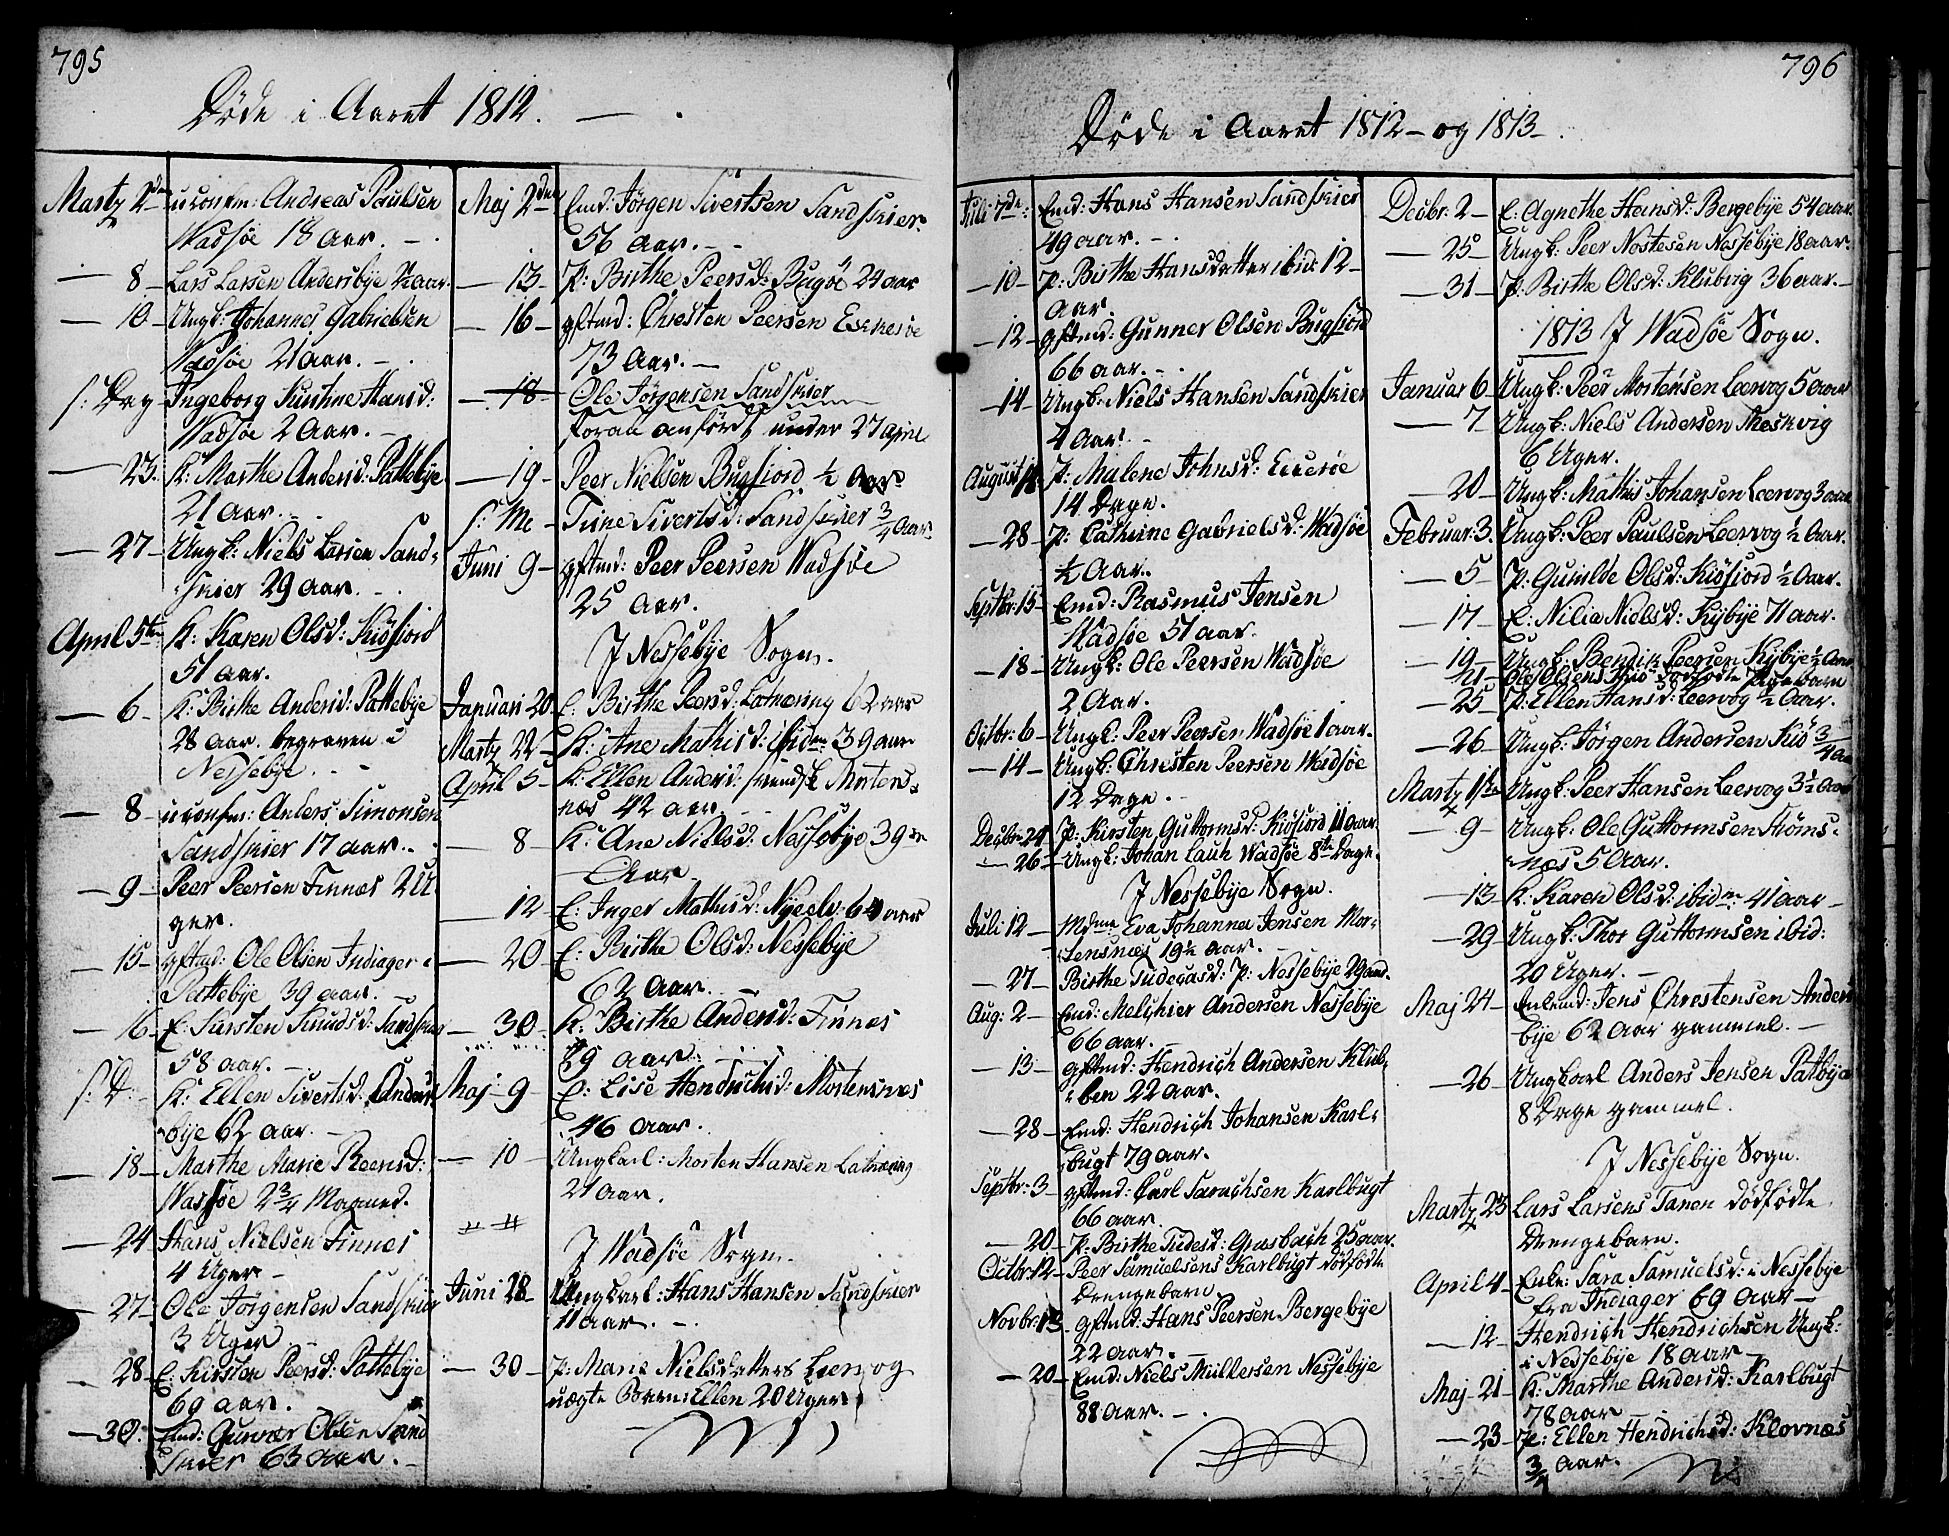 795
Døde i Aaret 1812. — .
Martz 2den uconfm: Andreas Paulsen
Wadsøe 18 Aar. —
— 8 — Lars Larsen Andersbye aar.
— 10 — Ungk: Johannes Gabrielsen
Wadsøe 21 Aar. —
s: Dag Ingeborg Hansd:
Wadsøe 2 Aar. —
— 23. K: Marthe Andersd: Pattebye
21 Aar. —
— 27 — Ungk: Niels Larsen Sand-
skier 29 Aar. —
April 5ten K: Karen Olsd: Kiøfiord
51 aar.
— 6 — K: Birthe Andersd: Pattebye
28 aar. begraven i
Nessebye. —
— 8 — uconfm: Anders Simonsen
Sandskier 17 aar. —
— 9 — Peer Peersen Finnes 2 U-
ger.
— 15 — gftmd: Ole Olsen Indiager i
Pattebye 39 aar. —
— 16 — E: Kirsten Knudsd: Sandskier
58 aar. —
s: D: K: Ellen Sivertsd: Anders
bye 62 aar. —
— 18 — Marthe Marie Peersd:
Wadsøe 2 3/4 Maaned.
— 24 Hans Nielsen Finnes
4 Uger —
— 27 — Ole Jørgensen Sandskier
3 Uger —
— 28 — E: Kirsten Peersd: Pattebye
69 aar. —
— 30. Emd: Gunner Olsen Sand
skier 63 aar. —
Maj 2den Emd: Jørgen Sivertsen Sandskier
56 aar. —
— 13 — P: Birthe Peersd: Bugøe 24 aar
— 16 — gftmd: Christen Peersen Eckerøe
73 Aar. —
— 18 — Ole Jørgensen Sandskier
foran anført under 27 April
— 19 — Peer Nielsen Bugfiord 1/2 Aar
s: Me — Trine Sivertsd: Sandskier 3/4 Aar.
Juni 9 — gftmd: Peer Peersen Wadsøe
25 Aar.
I Nessebye Sogn.
Januari 20. E: Birthe Peersd: Latnering 62 aar
Martz 22 — K: Ane Mathisd: ibidm 39 aar
April 5 — K: Ellen Andersd: Morten-
næs 42 aar —
— 8 — K: Ane Nielsd: Nessebye 39
Aar —
— 12 — E: Inger Mathisd: Nyeelv 64 aar
— 20 — E: Birthe Olsd: Nessebye
62 aar. —
— 30 — K: Birthe Andersd: Finnes
89 aar. —
Maj 9 — E: Lise Hendrichsd: Mortensnæs
46 aar.
— 10 — Ungkarl: Morten Hansen Latnæring
21 aar.
I Wadsøe Sogn.
Juni 28 — Ungkarl: Hans Hansen Sandskier
11 aar. —
— 30 — P: Marie Nielsdatters Leervog
uægte Barn: Ellen 20 Uger
796
Døde i Aaret 1812 — og 1813 — .
Juli 7de: Emd: Hans Hansen Sandskier
49 aar. —
— 10 — P: Birthe Hansdatter ibid: 12 —
aar.
— 12 — gftmd: Gunner Olsen Bugfiord
66 aar. —
— 14 — Ungk: Niels Hansen Sandskier
4 aar. —
August 18 P: Malene Johnsd: Eckerøe
14 Dage.
— 28 — P: Cathrine Gabrielsd: Wadsøe
1/2 Aar.
Septbr: 15 — Emd: Rasmus Jensen
Wadsøe 51 aar.
— 18 — Ungk: Ole Peersen Wadsøe
2 Aar.
Octbr: 6 — Ungk: Peer Peersen Wadsøe 1 aar.
— 14 — Ungk: Christen Peersen Wadsøe
12 Dage. —
Decbr 24 P: Kirsten Guttormsd: Kiøfiord 11 Aar.
— 26 — Ungk: Johan Lauh Wadsøe 8te Dage.
I Nessebye Sogn.
Juli 12 — Eva Johanna Jensen Mor-
tensnæs 19 1/2 Aar. —
— 27 — Birthe P: Nessebye
Aug: 2 — Emd: Melchier Andersen Nessebye
66 aar. —
— 13 — gftmd: Hendrich Andersen Klub-
ben 22 aar.
— 28 — Emd: Hendrich Johansen Karl-
bugt 79 aar.
Septbr: 3 — gftmd: Carl Karlbugt
66 aar.
— 20 — P: Birthe Tudesd: Grasbach 25 aar.
Octbr: 12 — Peer Samuelsens Karlbugt dødfødte
Drengebarn
Novbr: 13. gftmd: Hans Peersen Bergebye
22 aar. —
— 20 — Emd: Niels Mullersen Nessebye
88 aar. —
Decbr: 2 — E: Agnethe Hansd: Bergebye 54 aar.
— 25 — Ungk: Peer Nessebye 18 aar.
— 31 — P: Birthe Olsd: Klubvig 36 aar. —
1813 I Wadsøe Sogn.
Januar 6 — Ungk: Peer Mortensen Leervog 5 aar
— 7 — Ungk: Niels Andersen Meskvig
6 Uger.
— 20 — Ungk: Mathis Johansen Leervog 3 aar
Februar: 3. Ungk: Peer Paulsen Leervog 1/2 Aar.
— 5 — P: Gunilde Olsd: Kiøfiord 1/2 Aar.
— 17 — E: Nilia Nielsd: Kybye 71 aar.
— 19 — Ungk: Bendix Peersen Kybye 1/2 Aar
— 21 — Ole Olsens Kiø dødfødte Pigebarn
— 25 — P: Ellen Hansd: Leervog 1/2 Aar.
— 26 — Ungk: Jørgen Andersen Kiø 3/4 Aar
Martz 1ste Ungk: Peer Hansen Leervog 3 1/2 Aar
— 9 — Ungk: Ole Guttormsen Strøms-
næs 5 Aar.
— 13 K: Karen Olsd: ibidm 41 aar —
— 29 Ungk: Thor Guttormsen ibid:
20 Uger. —
Maj 24 — Enkmd: Jens Christensen Anders
bye 62 Aar gammel. —
— 26 — Ungkarl Anders Jensen Patbye
8 Dage gammel.
I Nessebye Sogn.
Martz 23 Lars Larsens Tanen dødfødte
Drengebarn.
April 4 — Enke: Sara Samuelsd: i Nessebye
fra Indiager 69 Aar —
— 12 — Hendrich Hendrichsen Ungk:
i Nessebye 18 aar —
Maj 21 — K: Marthe Andersd: Karlbugt
78 aar —
— 23 — P: Ellen Hendrichsd: Klovnæs
3/4 Aar. —